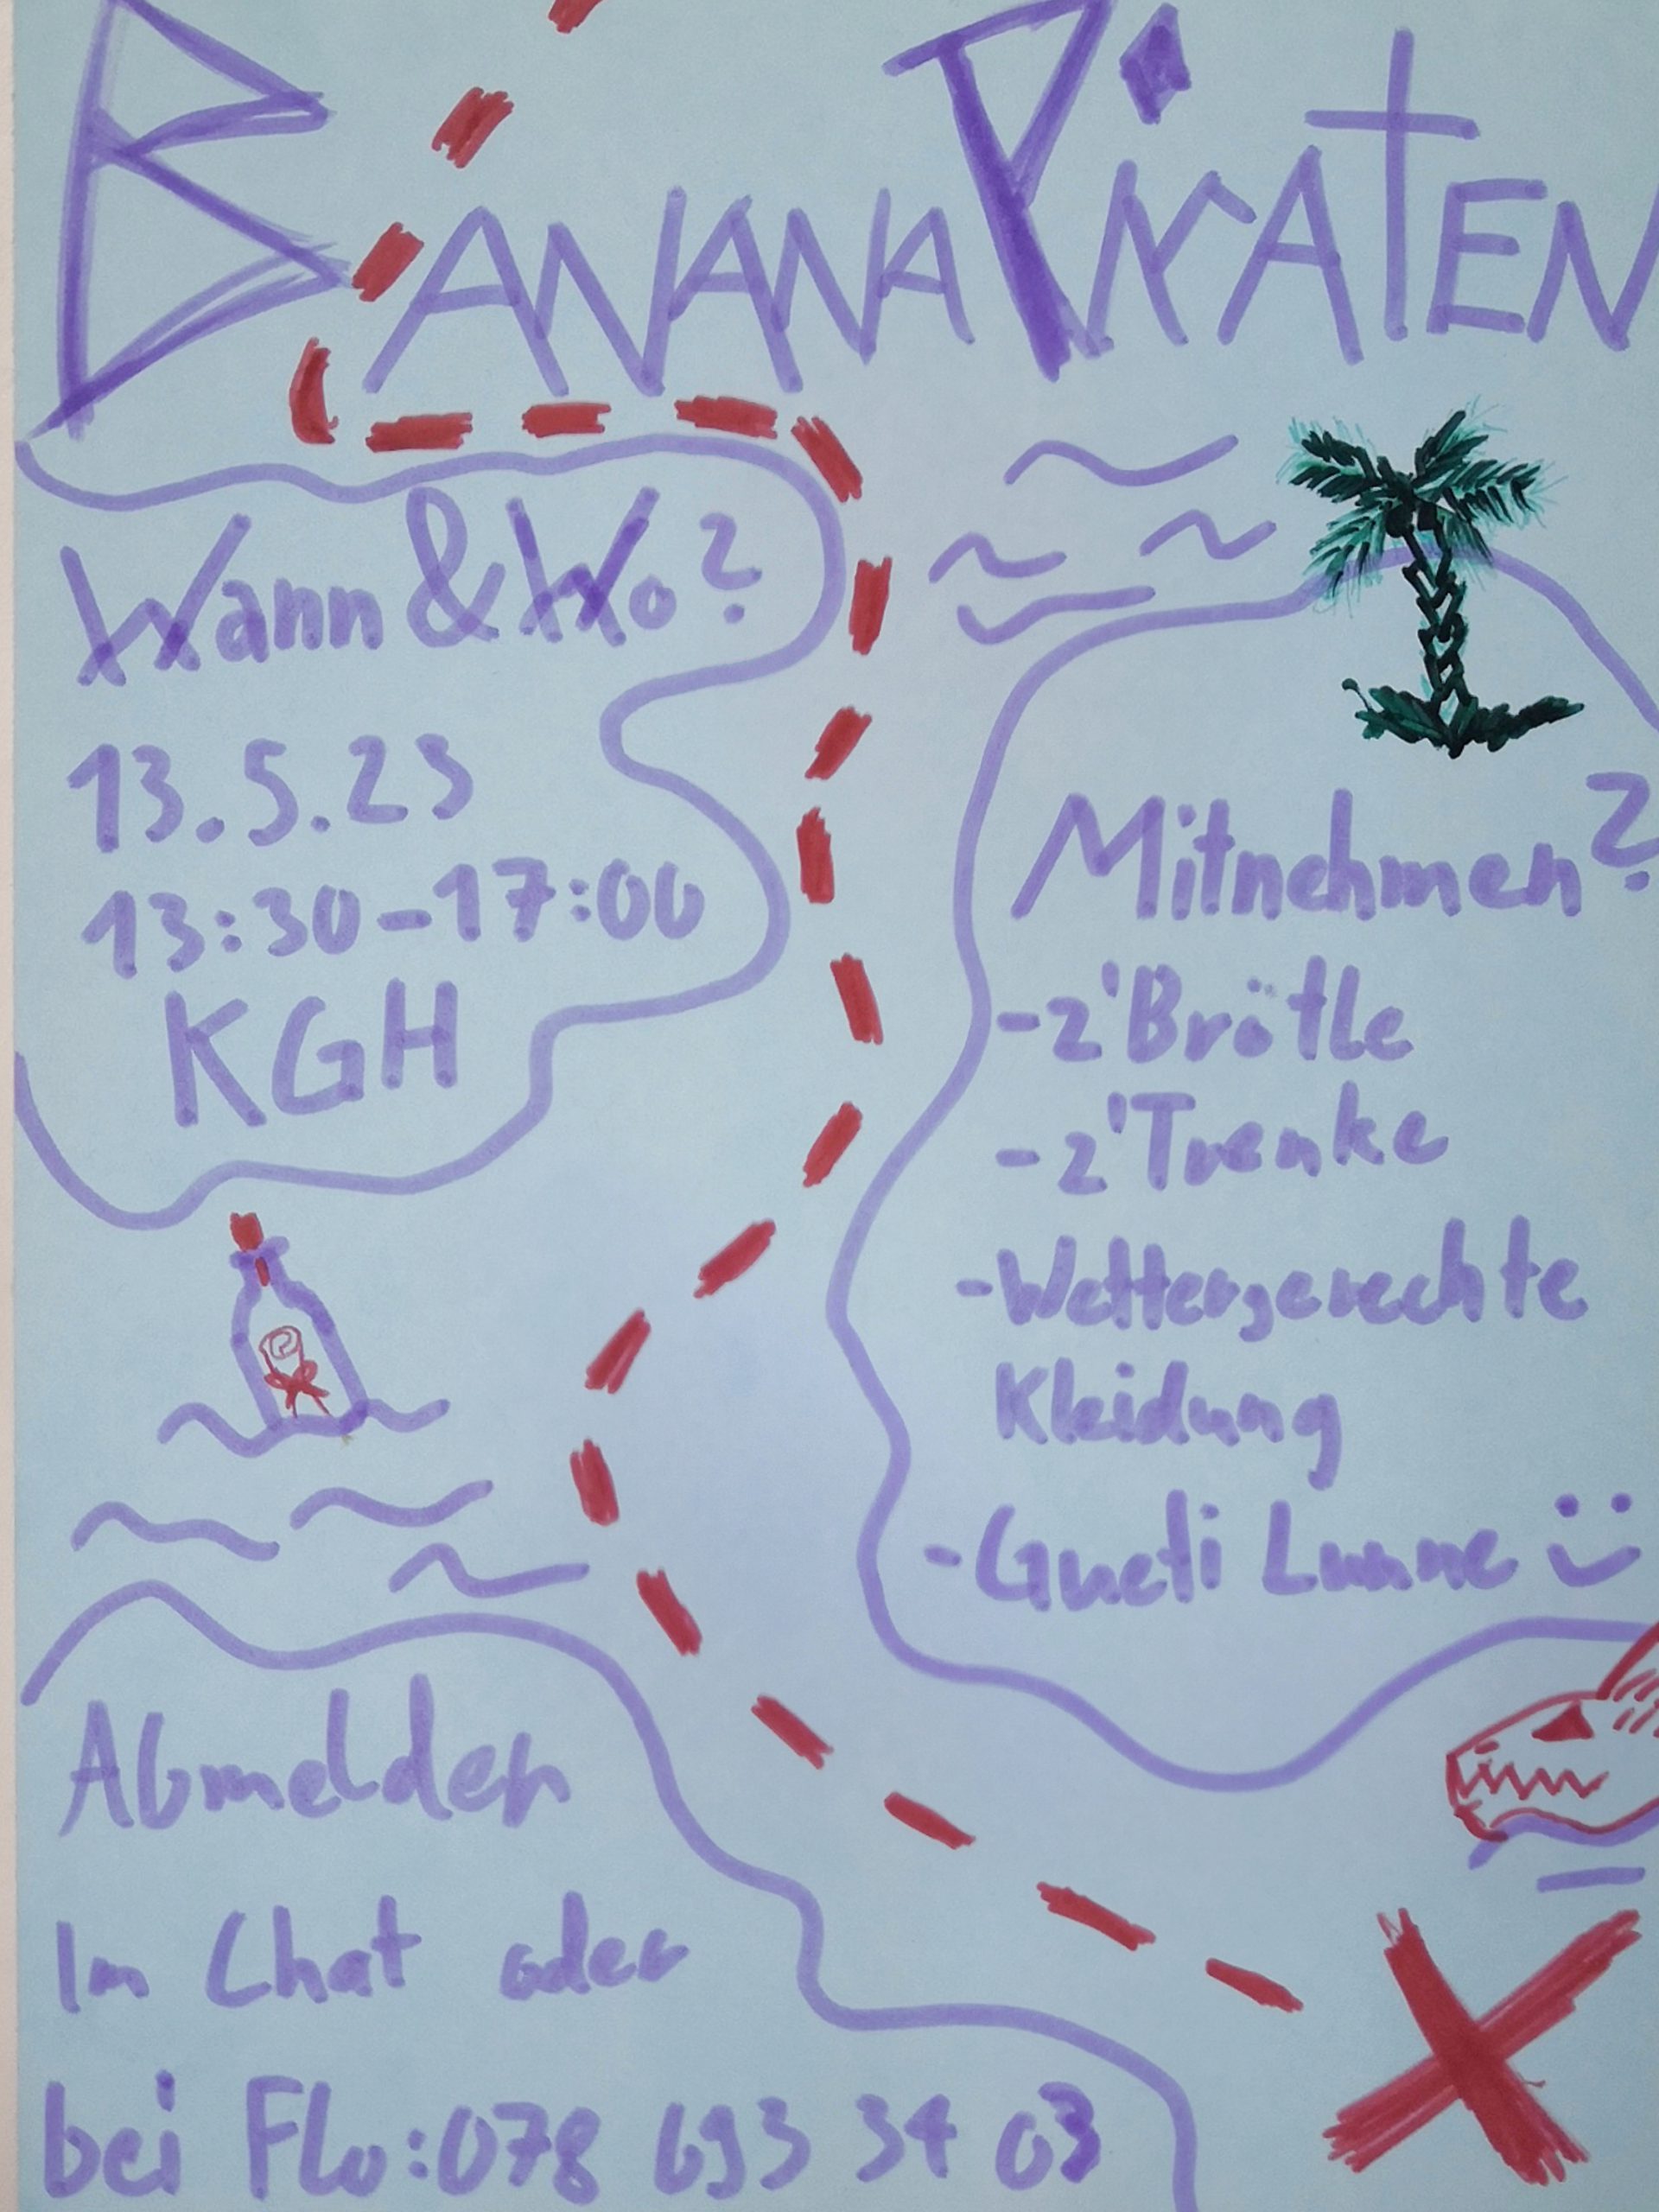 BANANAPIRATEN
Wann & Wo?
13.5.23
13:30-17:00
KGH
Mitnehmen?
-z'Brötle
-z'Trenke
-Wettergerechte
Kleidung
-Gueti Lunne
Abmelden
Im Chat oder
bei Flo: 078 693 34 03